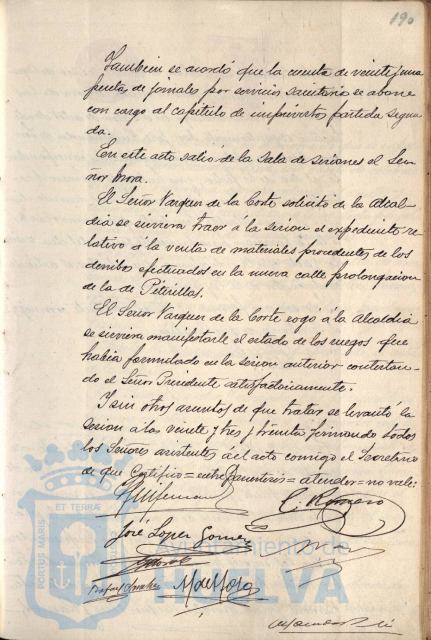 190
Tambien se acordó que la cuenta de veinte y una
peseta de jornales por servicio sanitario se abone
con cargo al capitulo de imprevistos partida segun-
da.
En este acto salió de la Sala de sesiones el Se-
ñor Mora.
El Señor Vazquez de la Corte solicitó de la Alcal-
dia se sirviera traer á la sesion el expediente re-
lativo á la venta de materiales procedentes de los
derribos efectuados en la nueva calle prolongacion
de la de Piterillas.
El Señor Vazquez de la Corte rogó á la Alcaldia
se sirviera manifestarle el estado de los ruegos que
habia formulado en la sesion anterior contestan-
do el Señor Presidente satisfactoriamente.
Y sin otros asuntos de que tratar se levantó la
sesion á las veinte y tres y treinta firmando todos
los Señores asistentes al acto conmigo el Secretario
de que Certifico = entre parentesis = atender = no vale =
C. Romero
José Lopez Gomez
Rafael
Mora
PORTUS MARIS ET TERRAE
Ayuntamiento de
HUELVA